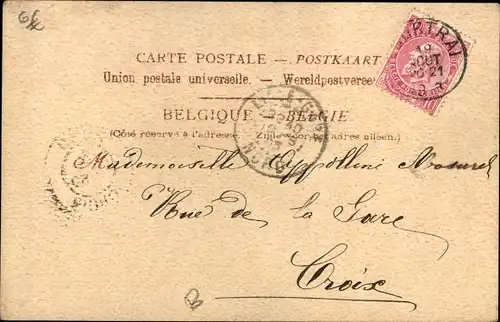 CARTE POSTALE — POSTKAART
Union postale universelle. — Wereldpostveree
BELGIQUE — BELGIE
(Côté réservé à l'adresse. — Zijde voor het adres alleen.)
Mademoiselle Appollini
Rue de la Gare
Croix
COURTRAI
19
AOUT
21
NORD